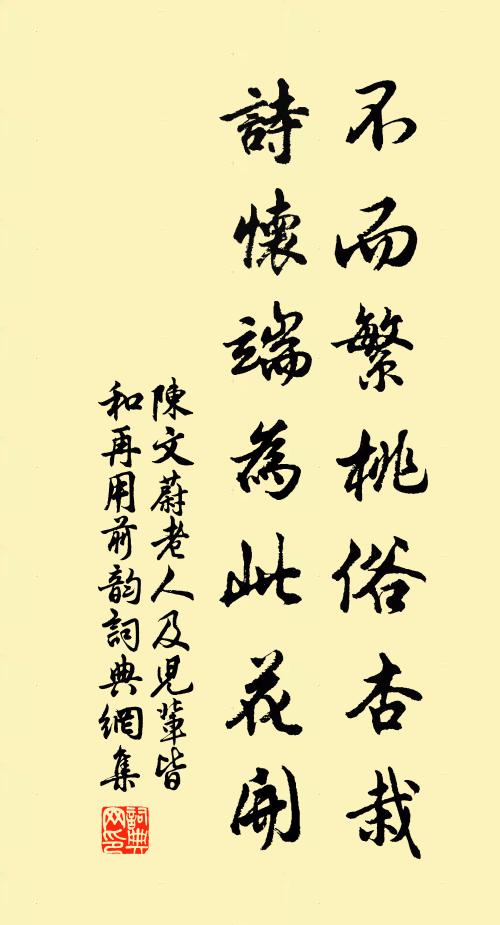 不而繁桃俗杏栽
詩懷端為此花開
陳文蔚老人及兒輩皆
和再用前韵詞典網集
詞典
网印